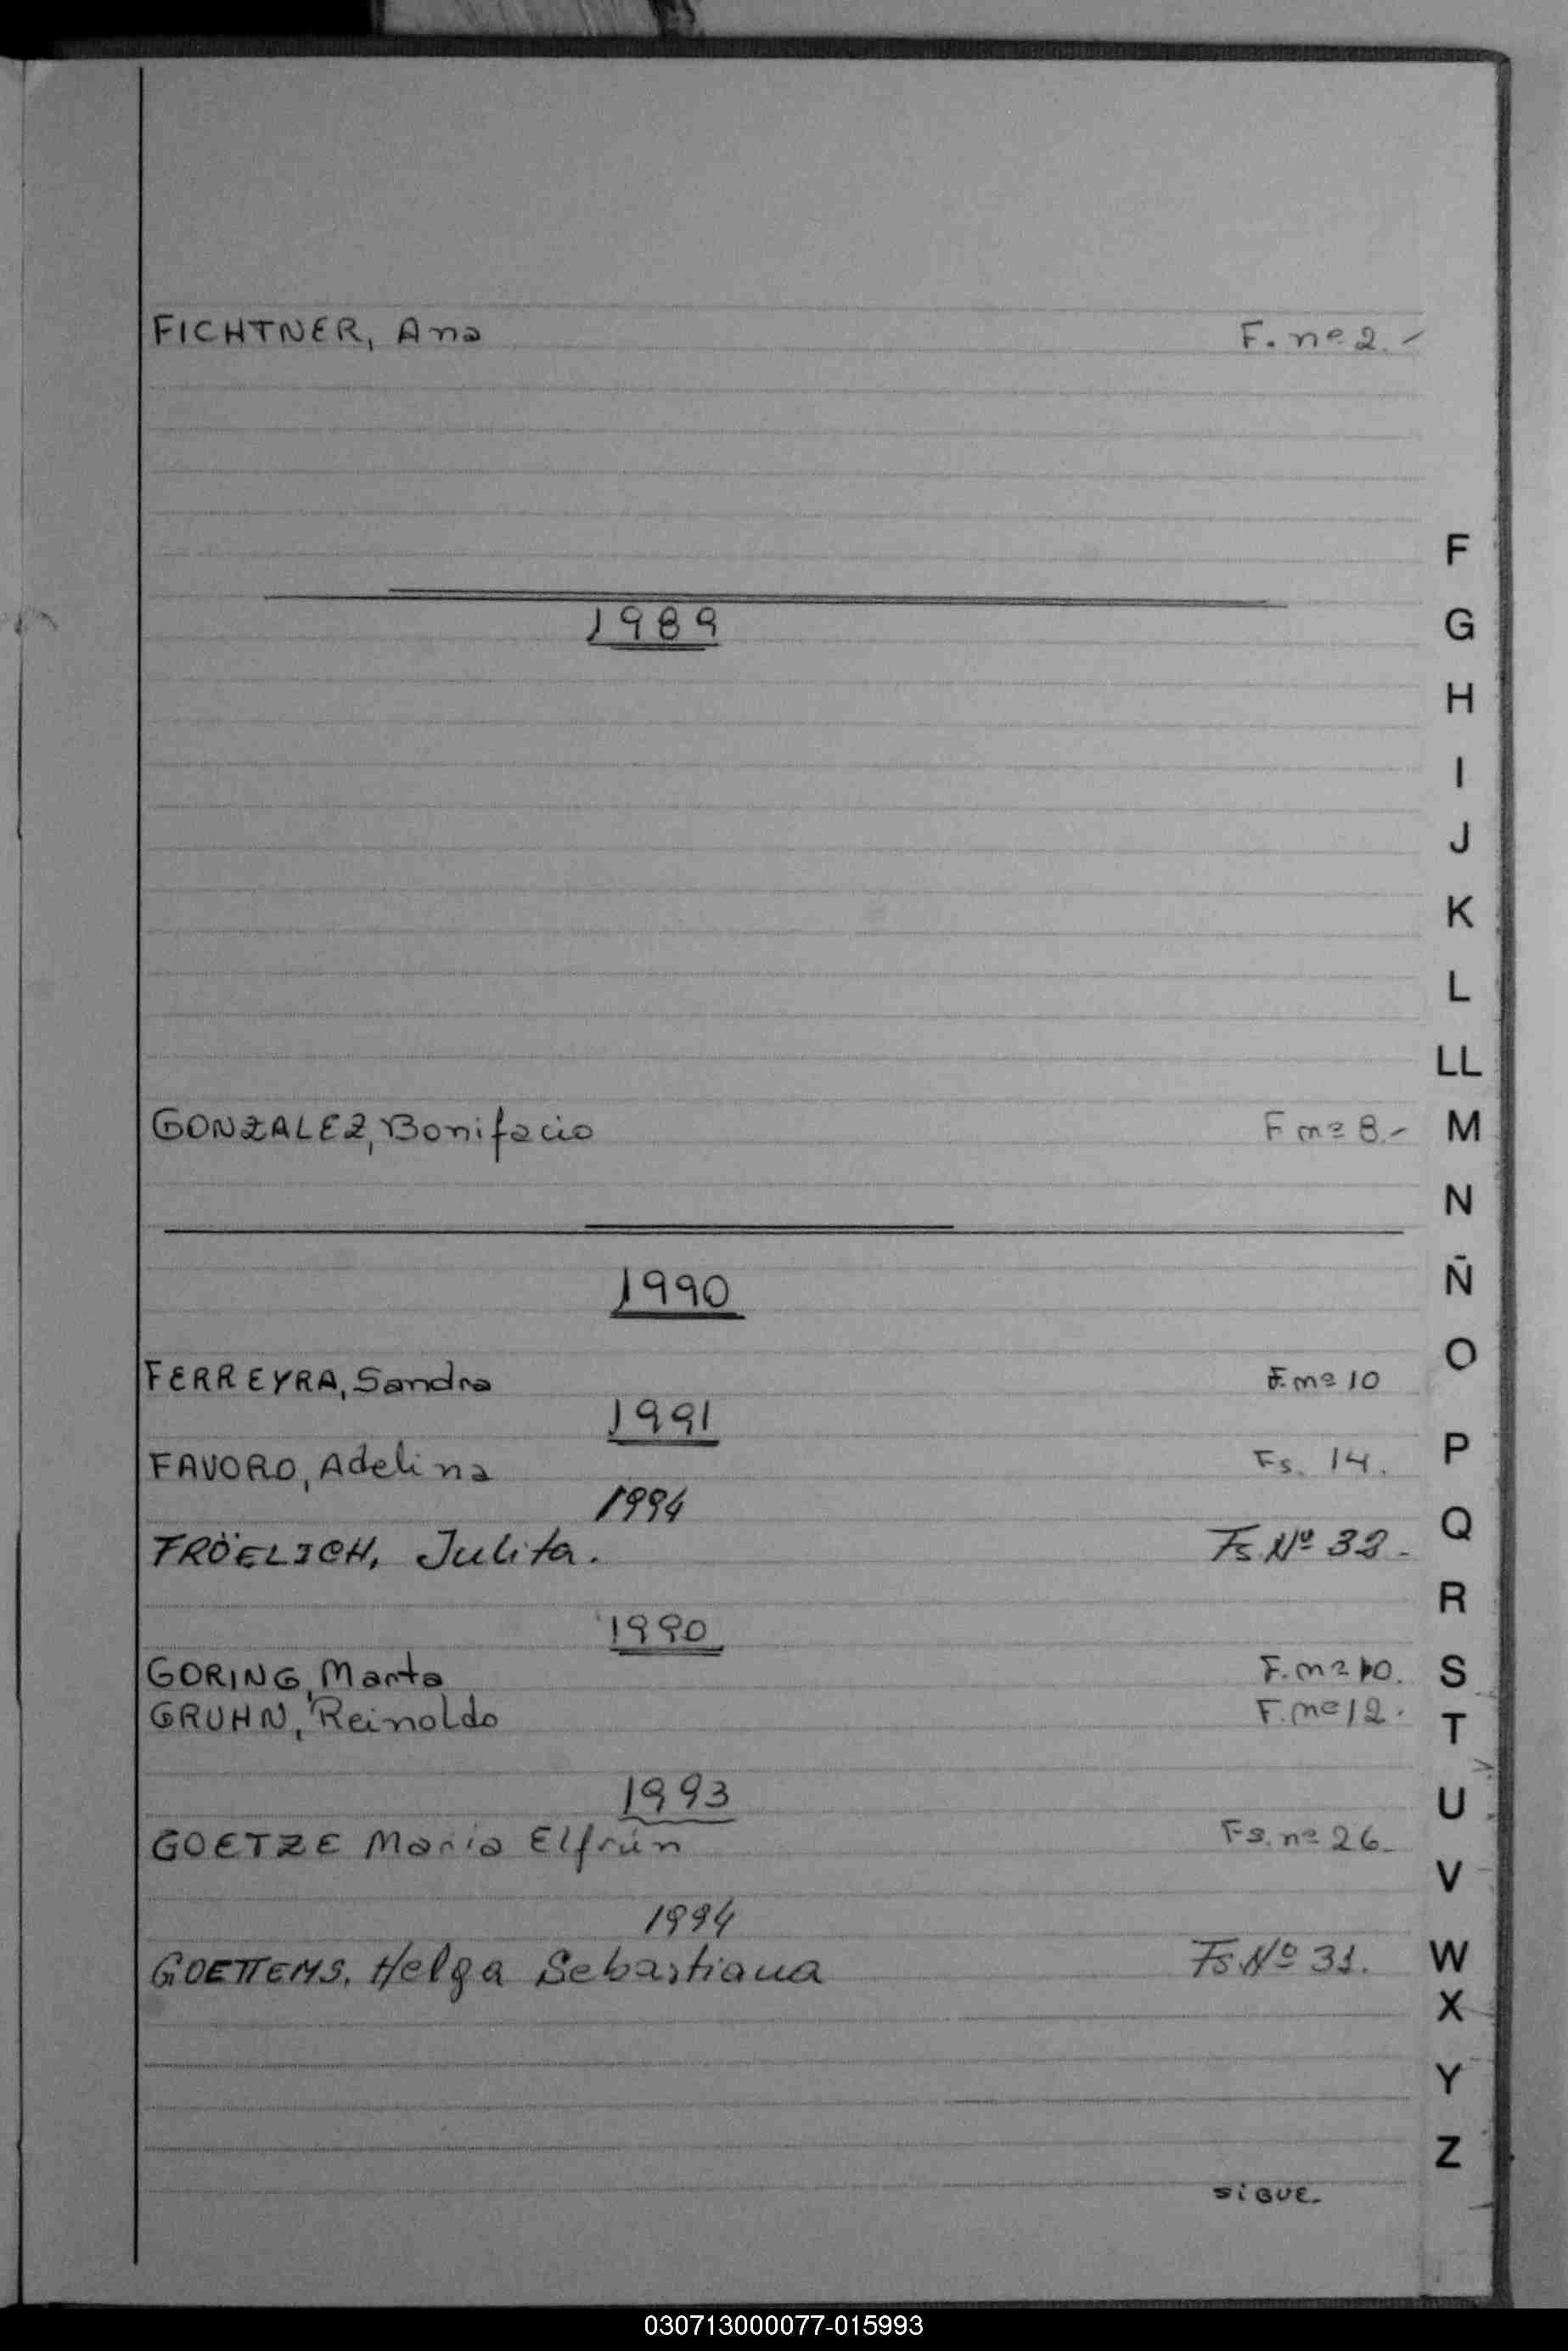 FICHTNER, Ana F. nº 2.-
1989
GONZALEZ, Bonifacio F nº 8.-
1990
FERREYRA, Sandra F. nº 10
1991
FAVORO, Adelina Fs. 14.
1994
FRÖELICH, Julita. Fs. Nº 32.-
1990
GORING, Marta F. nº 10.
GRUHN, Reinoldo F. nº 12.
1993
GOETZE Maria Elfrún Fs. nº 26.
1994
GOETTEMS, Helga Sebastiana Fs Nº 31.
SIGUE.
F
G
H
I
J
K
L
LL
M
N
Ñ
O
P
Q
R
S
T
U
V
W
X
Y
Z
030713000077-015993